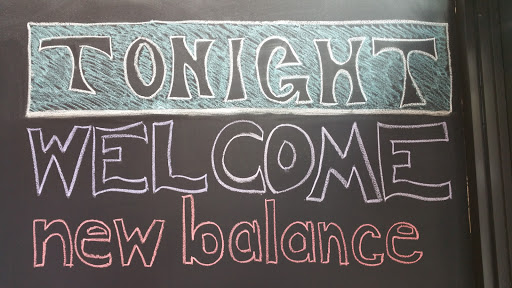 TONIGHT
WELCOME
new balance